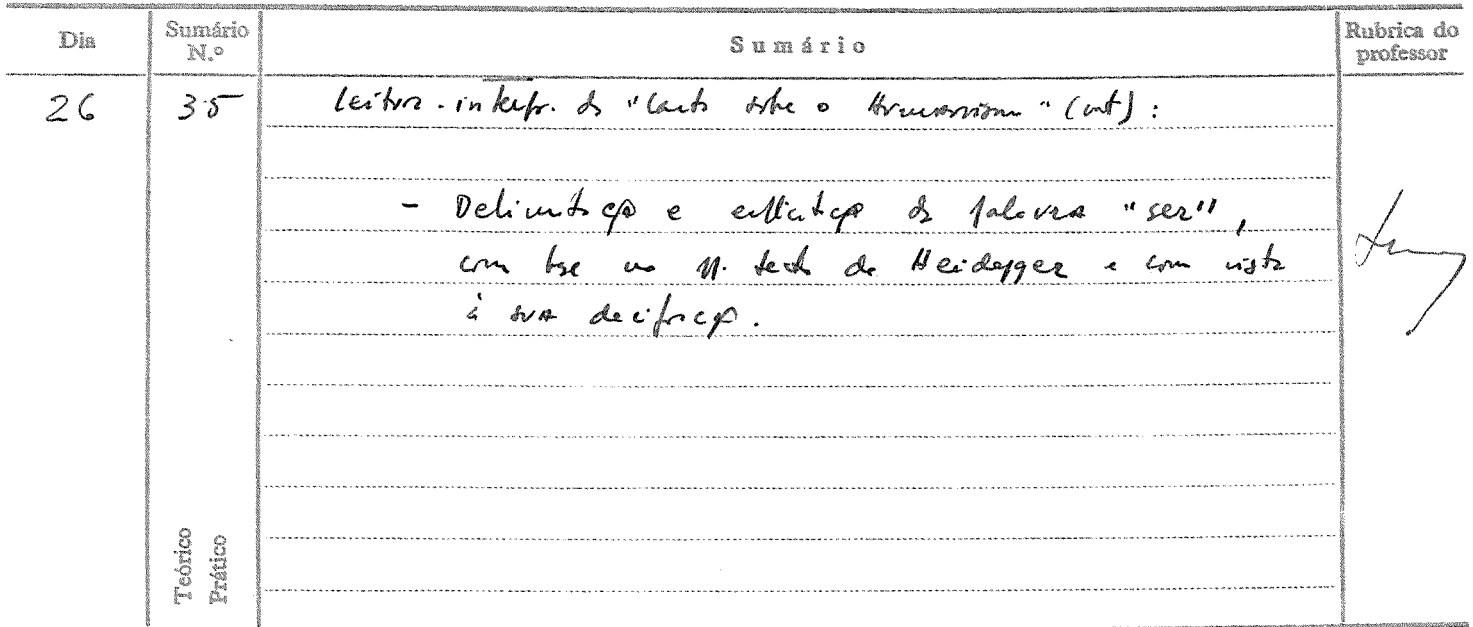 Dia Sumário N.º Sumário Rubrica do professor
26 35 Leitura-interpr. da "Carta sobre o Humanismo" (cont):
- Delimitação e explicitação da palavra "ser",
com base no texto de Heidegger e com vista
à sua decifração.
Teórico
Prático